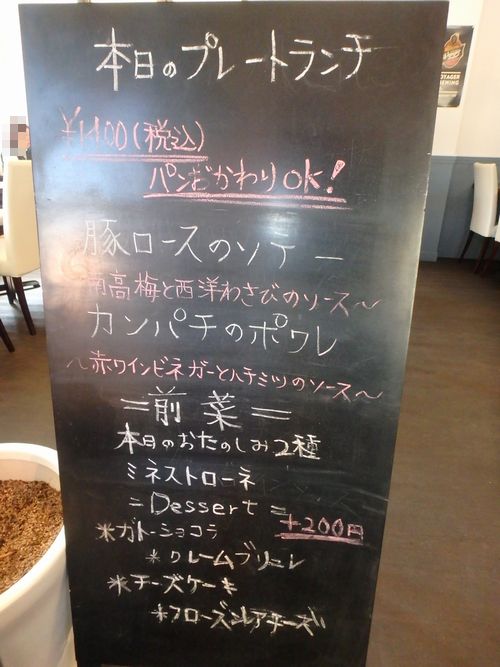 本日のプレートランチ
¥1400(税込)
パンおかわりOK!
豚ロースのソテー
南高梅と西洋わさびのソース〜
カンパチのポワレ
〜赤ワインビネガーとハチミツのソース〜
=前菜=
本日のおたのしみ2種
ミネストローネ
=Dessert= +200円
*ガトーショコラ
*クレームブリュレ
*チーズケーキ
*フローズンレアチーズ
VOYAGER
BREWING